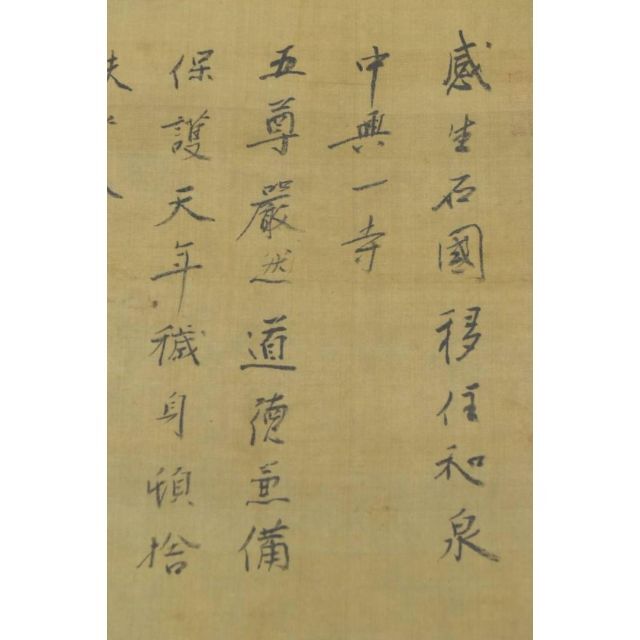 感生石國移住和泉
中興一寺
五尊嚴然道德兼備
保護天年穢身頓捨